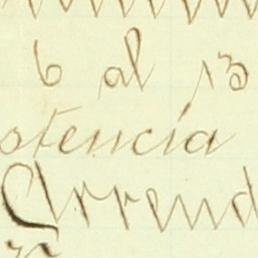 6 al 13
stencia
Arrend